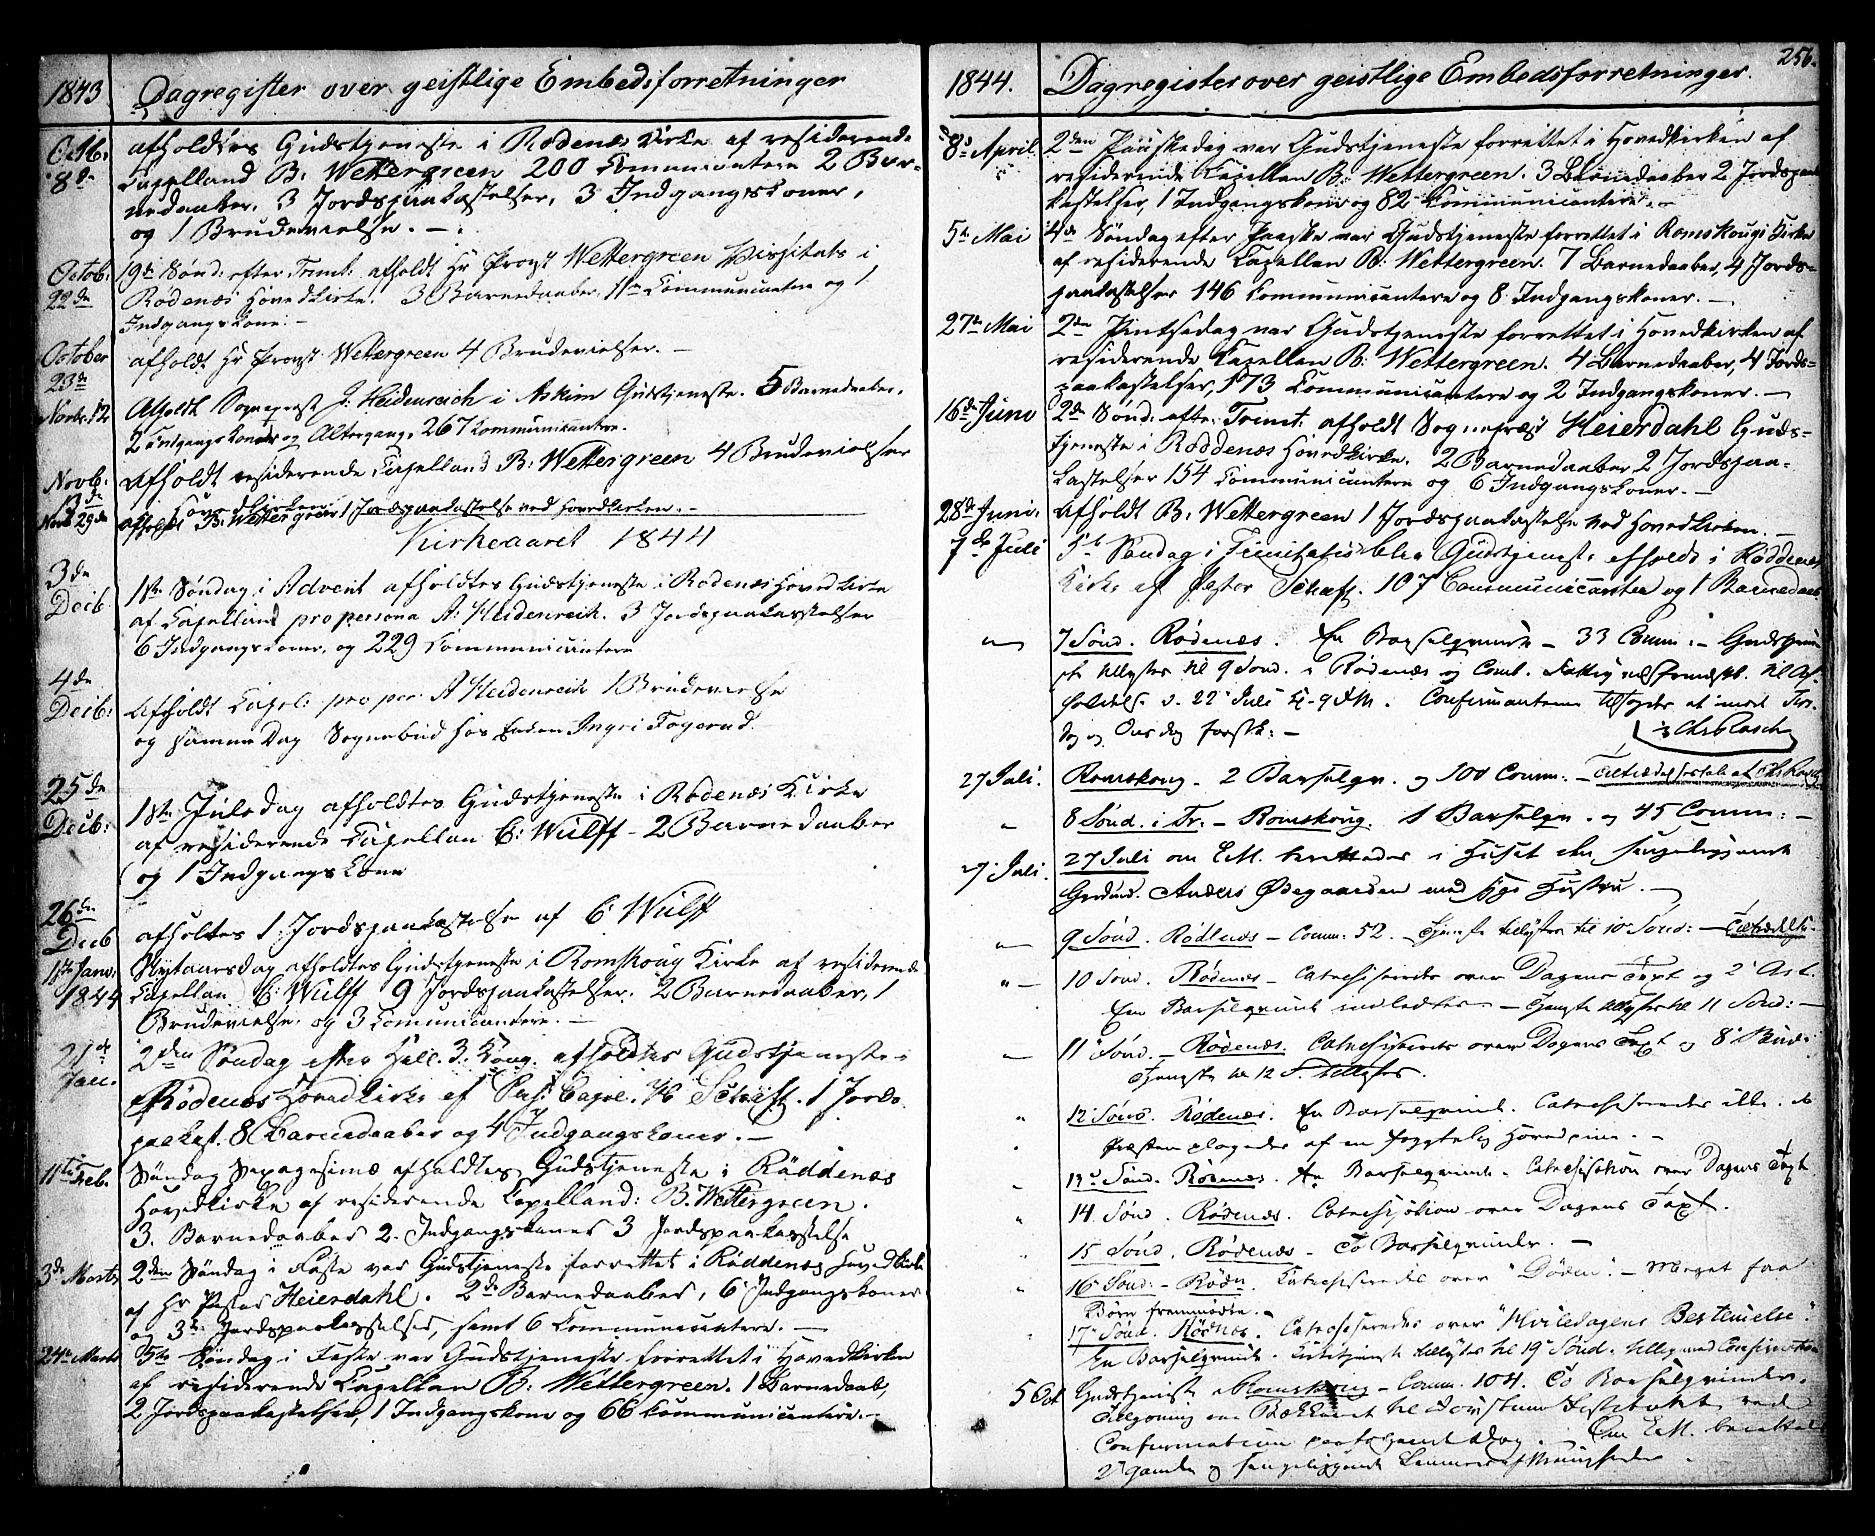 1843 Dagregister over geistlige Embedsforretninger
Octb: 8de afholdtes Gudstjeneste i Rødenæs Kirke af residerende
Capelland B: Wettergreen 200 Communicantere 2 Bar-
nedaaber, 3 Jordspaakastelser, 3 Indgangskoner,
og 1 Brudevielse. –
Octob: 22de 19de Sønd: efter Trinit: afholdt Hr Provst Wettergreen Visitats i
Rødenæs Hovedkirke. 3 Barnedaaber, Communicantere og 1
Indgangskone: –
October 23de afholdt Hr Provst Wettergreen 4 Brudevielser. –
Novbr. 12 Afholdt Sognepræst J. Heidenreich i Askim Gudstjeneste. 5 Barnedaaber,
2 Indgangskoner og Altergang, 267 Kommunicantere.
Novb: 13de Afholdt residerende Capelland B: Wettergreen 4 Brudevielser
Hovedkirken
Novb 29de afholdt B: Wettergreen 1 Jordspaakastelse ved Hovedkirken. –
Kirkeaaret 1844
3de Decb 1ste Søndag i Advent afholdtes Gudstjeneste i Rødenæs Hovedkirke
af Capelland pro persona A: Heidenreich. 3 Jordspaakastelser
6 Indgangskoner, og 229 Communicantere
4de Decb: Afholdt Capel: pro per. A Heidenreich 1 Brudevielse
og samme Dag Sognebud hos Enken Ingri Fagerud
25de Decb: 1ste Juledag afholdtes Gudstjeneste i Rødenæs Kirke
af residerende Capellan C: Wulff – 2 Barnedaaber
og 1 Indgangskone
26de Decb afholtes 1 Jordspaakastelse af C: Wulff
1ste Janu: 1844 Nytaarsdag afholdtes Gudstjeneste i Romskoug Kirke af residerende
Capellan C: Wulff 9 Jordspaakastelser, 2 Barnedaaber, 1
Brudevielse, og 3 Communicantere. –
21de Jan. 2den Søndag efter Hell. 3 Kong. afholdtes Gudstjeneste i
Rødenæs Hovedkirke af Pers: Capel. Schaft. 1 Jords-
paakast. 8 Barnedaaber og 4 Indgangskoner. –
11te Feb. Søndag Sexagesimæ afholdtes Gudstjeneste i Røddenæs
Hovedkirke af residerende Capelland: B. Wettergreen.
3. Barnedaaber 2. Indgangskoner 3 Jordspaakastelse
3de Marts 2den Søndag i Faste var Gudstjeneste forrettet i Røddenæs Hovedkirke
af Hr Pastor Heierdahl. 2de Barnedaaber, 6 Indgangskoner
og 3de Jordspaakastelser, samt 6 Communicantere. –
24de Marts 5te Søndag i Faste var Gudstjeneste forrettet i Hovedkirken
af residerende Capellan B: Wettergreen. 1 Barnedaab,
2 Jordspaakastelser, 1 Indgangskone og 66 Communicantere. –
256.
1844. Dagregister over geistlige Embedsforretninger.
8de April 2den Paaskedag var Gudstjeneste forrettet i Hovedkirken af
residerende Capellan B: Wettergreen. 3 Barnedaaber 2 Jordspaa
kastelser, 1 Indgangskone og 82 Communicantere. –
5te Mai 4de Søndag efter Paaske var Gudstjeneste forrettet i Romskougs Kirke
af residerende Capellan B: Wettergreen. 7 Barnedaaber, 4 Jords-
paakastelser 146 Communicantere og 8 Indgangskoner. –
27de Mai 2den Pintsedag var Gudstjeneste forrettet i Hovedkirken af
residerende Capellan B: Wettergreen. 4 Barnedaaber, 4 Jords-
paakastelser, 173 Communicantere og 2 Indgangskoner. –
16de Juni 2de Sønd: efter Trinit: afholdt Sognepræst Heierdahl Guds-
tjeneste i Røddenæs Hovedkirke. 2 Barnedaaber 2 Jordspaa-
kastelser 154 Communicantere og 6 Indgangskoner. –
28de Juni: Afholdt B: Wettergreen 1 Jordspaakastelse ved Hovedkirken. –
7de Juli 5te Søndag i Trinitatis blev Gudstjeneste afholdt i Røddenæs
Kirke af Pastor Schaft. 107 Communicanter og 1 Barnedaab
" 7 Sønd. Rødenæs. En Barselqvinde – 33 Comm: – Gudstjene
ste tillystes til 9 Sønd. i Rødenæs og Comt. til Af-
holdelse d. 22 Juli Kl. 9 F.M. Confirmanterne tilsagdes at møde Tirs-
dag og Onsdag førstk: –
27 Juli. Romskoug – 2 Barselqv. og 100 Comm: –
" 8 Sønd. i Tr. – Romskoug. 1 Barselqv. og 45 Comm: –
27 Juli. 27 Juli om E.M. berettedes i Huset den sengeliggende
Grdmd. Anders Ødegaarden med hs Hustru. –
" 9 Sønd. Rødenæs – Comm: 52. – Tjeneste tillystes til 10 Sønd: –
" 10 Sønd. Rødenæs – Catechiseredes over Dagens Text og 2 Art.
En Barselqvinde indledtes – Tjeneste tillystes til 11 Sønd: –
" 11 Sønd. – Rødenæs. Catechiseredes over Dagens Text og 8 Bud:
Tjeneste til 12 S. tillystes.
" 12 Sønd. Rødenæs. En Barselqvinde. Catechiseredes ikke, da
Præsten plagedes af en frygtelig Hovedpine. –
" 13 Sønd. Rødenæs. En Barselqvinde. Catechisation over Dagens Text
" 14 Sønd. Rødenæs. Catechisation over Dagens Text.
" 15 Sønd. Rødenæs – To Barselqvinder. –
" 16 Sønd: – Rødn. Catechiseredes over "Døden". – Meget faa
Børn fremmødte. –
" 17 Sønd. Rødnæs. Catechiseredes over "Hviledagens Bestemelse".
En Barselqvinde. tillystes til 19 Sønd. tilligemed Confirmation
5 Oct Gudstjeneste i Romskoug – Comm. 104. To Barselqvinder.
ved
Confirmation Dag. Om E.M. berettedes
2 gamle og sengeliggende